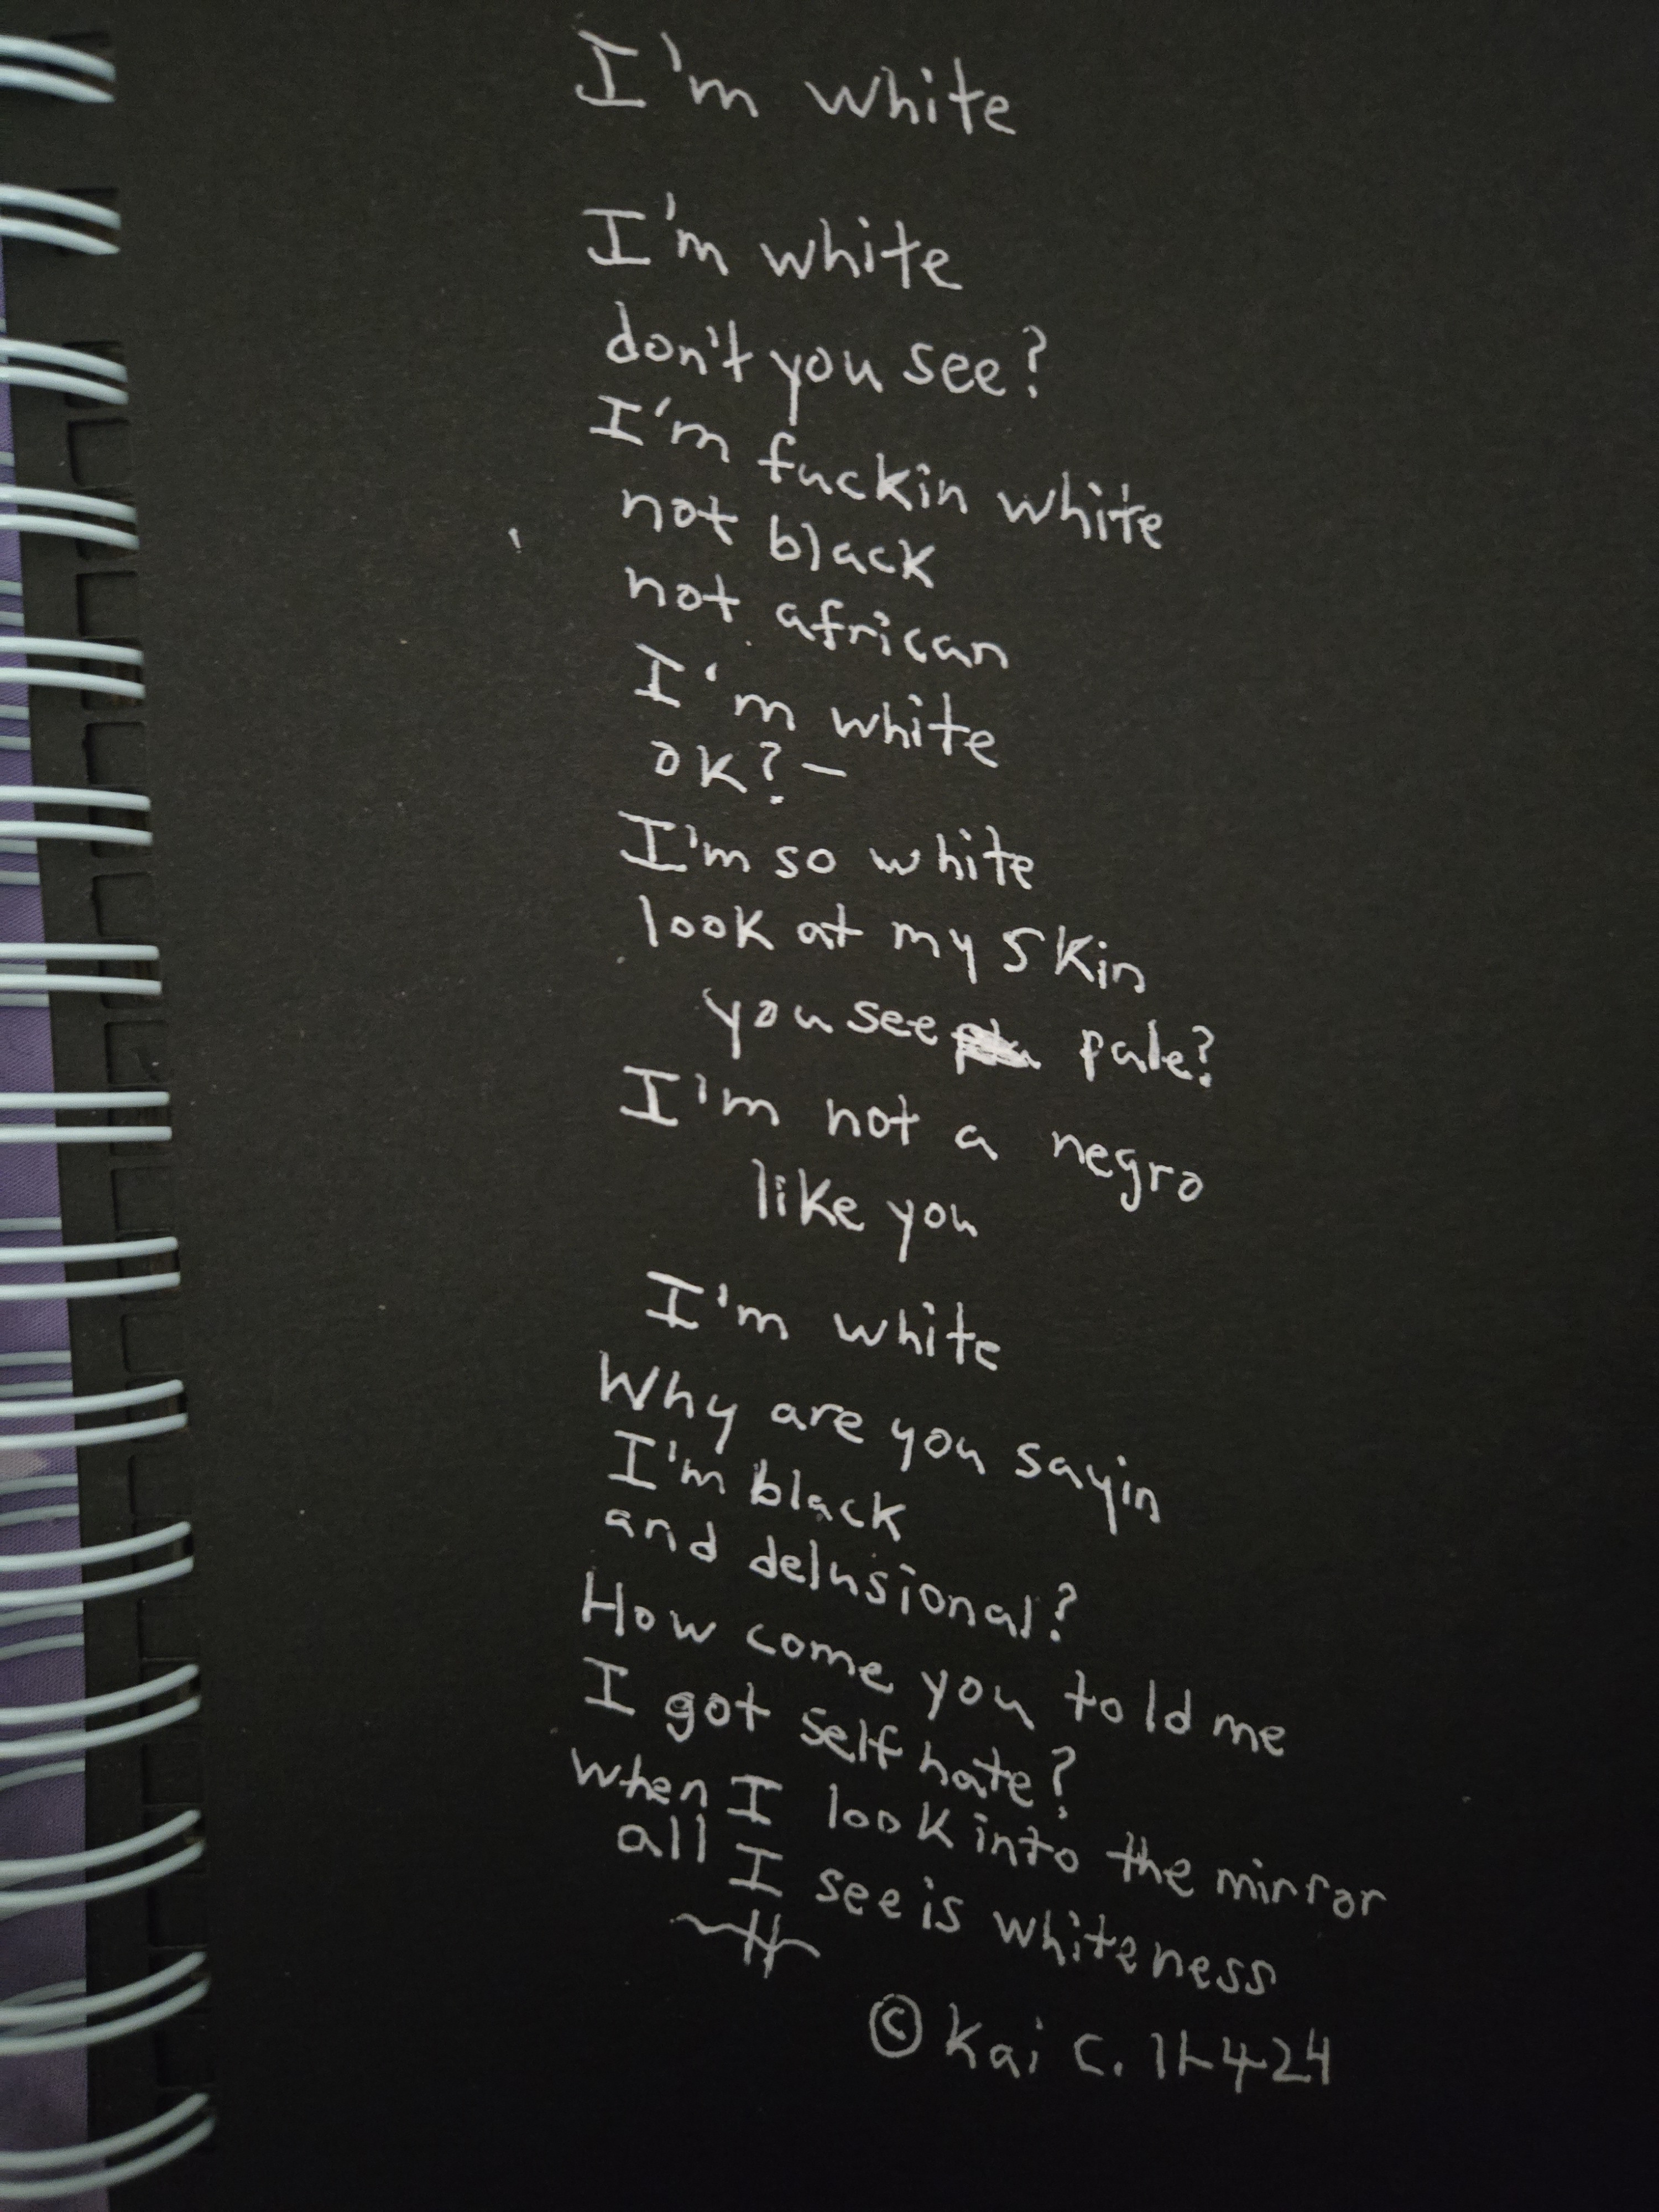 I'm white
I'm white
don't you see?
I'm fuckin white
not black
not african
I'm white
OK? –
I'm so white
look at my skin
you see pale?
I'm not a negro
like you
I'm white
Why are you sayin
I'm black
and delusional?
How come you told me
I got self hate?
when I look into the mirror
all I see is whiteness
© Kai C. 11-4-24